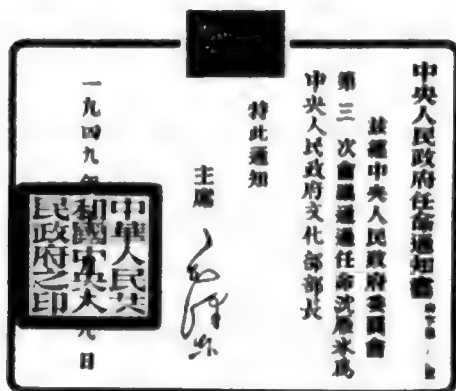 中央人民政府任命通知書
茲經中央人民政府委員會
第三次會議通過任命沈雁冰爲
中央人民政府文化部部長
特此通知
主席 毛澤東
一九四九年
九日
中華人民共
和國中央人
民政府之印